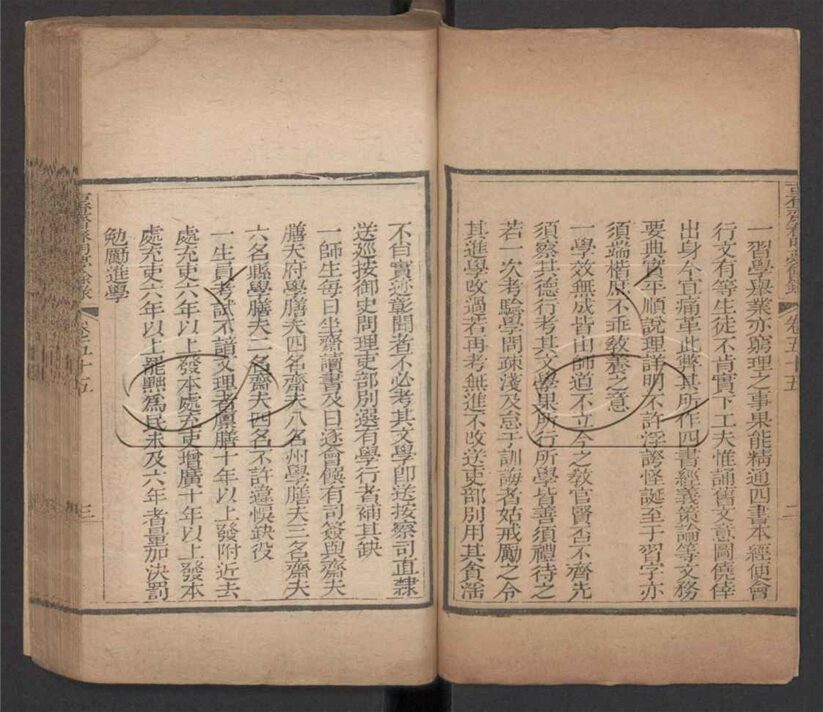 古香齋春明夢餘錄 卷五十五 二
一習學舉業亦窮理之事果能精通四書本經便會
行文有等生徒不肯實下工夫惟誦舊文意圖僥倖
出身今宜痛革此弊其所作四書經義策論等文務
要典實平順說理詳明不許浮誇怪誕至于習字亦
須端楷庶不乖教養之意
一學效無成皆由師道不立今之教官賢否不齊先
須察其德行考其文學果所行所學皆善須禮待之
若一次考驗學問疎淺及怠于訓誨者姑戒勵之令
其進學改過若再考無進不改送吏部別用其貪淫
不肖實迹彰聞者不必考其文學卽送按察司直隸
送巡按御史問理吏部別選有學行者補其缺
一師生每日坐齋讀書及日逐會饌有司簽與齋夫
膳夫府學膳夫四名齋夫八名州學膳夫三名齋夫
六名縣學膳夫二名齋夫四名不許違悞缺役
一生員考試不諳文理者廩膳十年以上發附近去
處充吏六年以上發本處充吏增廣十年以上發本
處充吏六年以上罷黜爲民未及六年者量加決罰
勉勵進學
古香齋春明夢餘錄 卷五十五 三